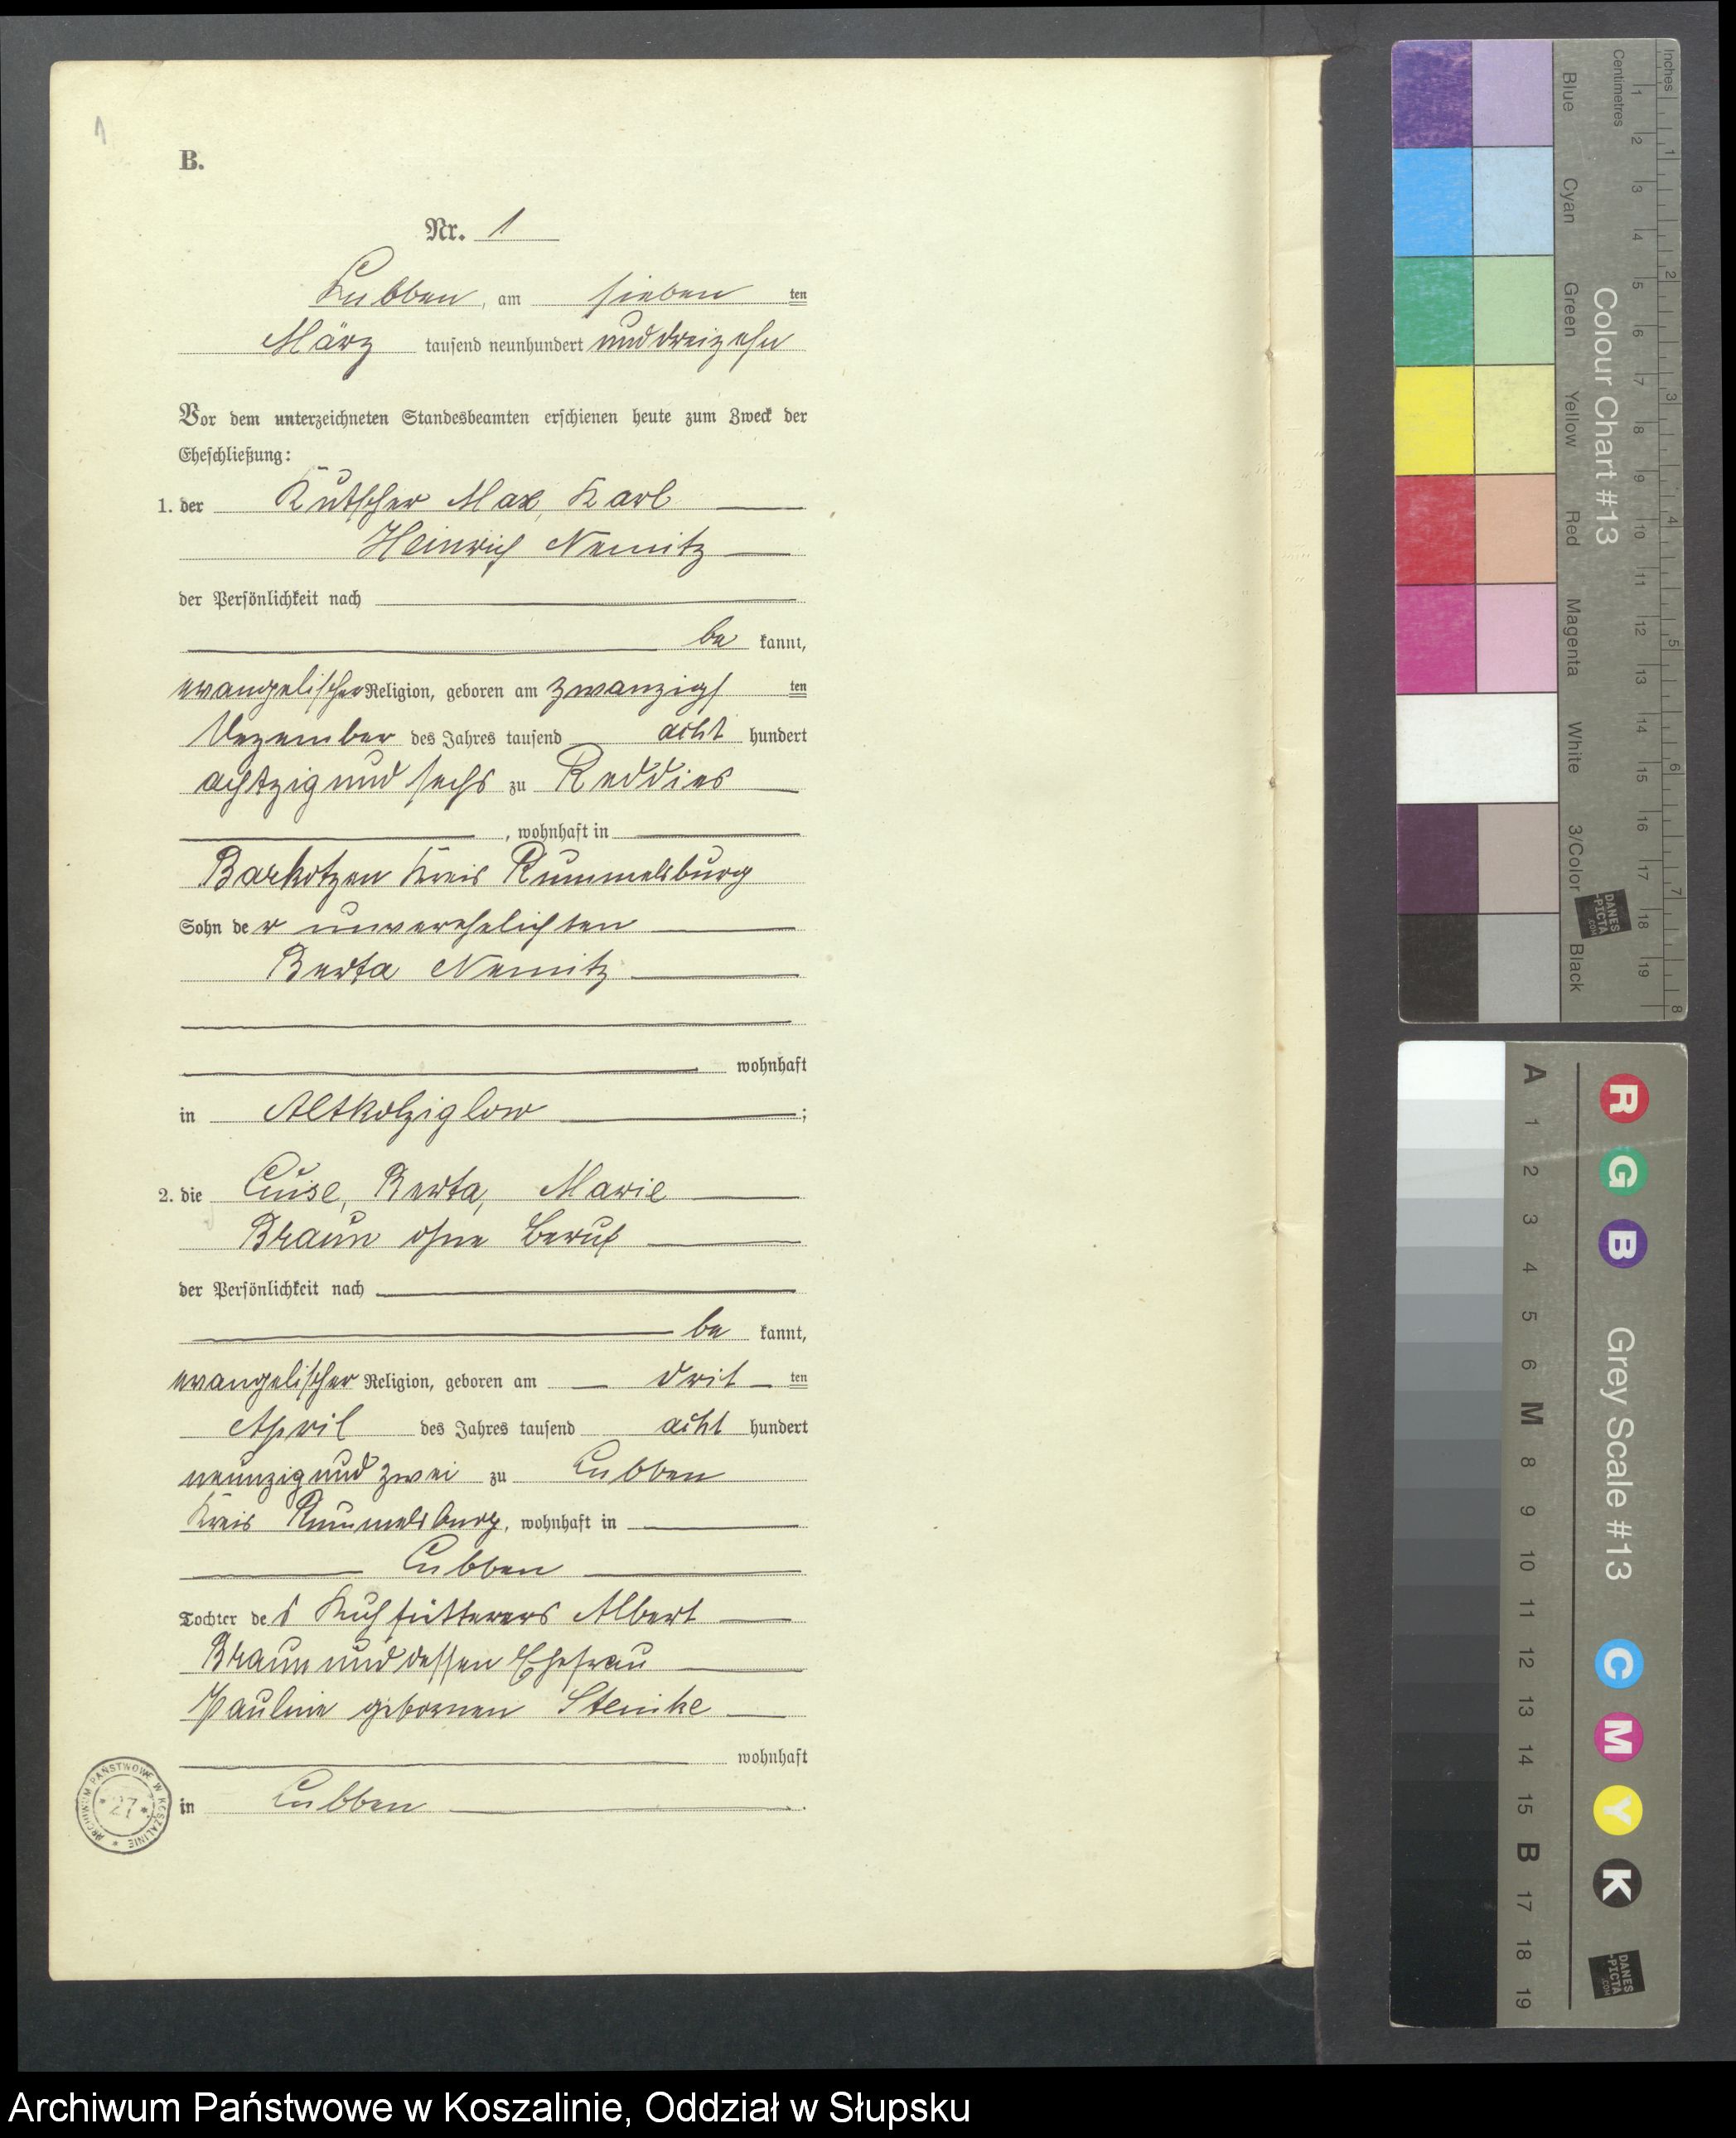 1
B.
Nr. 1
Lubben, am sieben ten
März tausend neunhundert und dreizehn
Vor dem unterzeichneten Standesbeamten erschienen heute zum Zweck der
Eheschließung:
1. der Kutscher Max, Karl
Heinrich Nemitz
der Persönlichkeit nach
be kannt,
evangelischer Religion, geboren am zwanzigs ten
Dezember des Jahres tausend acht hundert
achtzig und sechs zu Reddies
, wohnhaft in
Barkotzen Kreis Rummelsburg
Sohn der unverehelichten
Berta Nemitz
wohnhaft
in Altkolziglow ;
2. die Luise, Berta, Marie
Braun ohne Beruf
der Persönlichkeit nach
be kannt,
evangelischer Religion, geboren am drit ten
April des Jahres tausend acht hundert
neunzig und zwei zu Lubben
Kreis Rummelsburg, wohnhaft in
Lubben
Tochter des Kuhfütterers Albert
Braun und dessen Ehefrau
Pauline gebornen Steinke
wohnhaft
in Lubben .
ARCHIWUM PAŃSTWOWE W KOSZALINIE
* 27 *
Inches
Centimetres
1 2 3 4 5 6 7 8
1 2 3 4 5 6 7 8 9 10 11 12 13 14 15 16 17 18 19
Colour Chart #13
Blue Cyan Green Yellow Red Magenta White 3/Color Black
DANES
-PICTA
.COM
A 1 2 3 4 5 6 M 8 9 10 11 12 13 14 15 B 17 18 19
R G B Grey Scale #13 C M Y K
DANES
-PICTA
.COM
Archiwum Państwowe w Koszalinie, Oddział w Słupsku